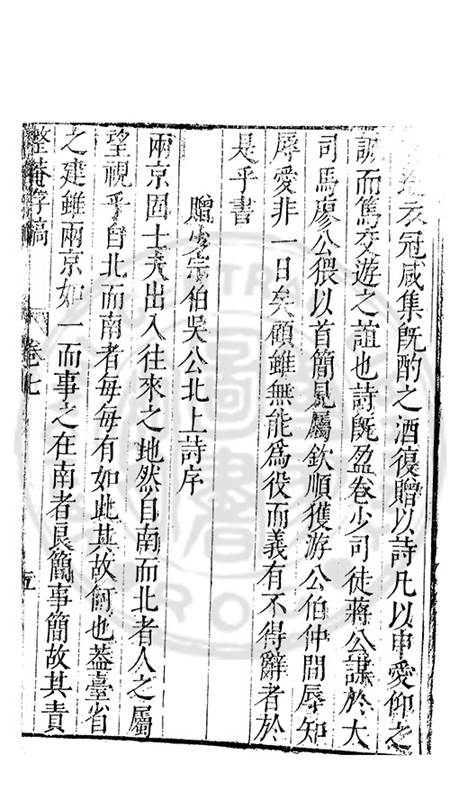 衣冠咸集旣酌之酒復贈以詩凡以申愛仰之
而篤交遊之誼也詩旣盈卷少司徒蔣公謀於大
司馬廖公猥以首簡見屬欽順獲游公伯仲間辱知
辱愛非一日矣顧雖無能爲役而義有不得辭者於
是乎書
贈少宗伯吳公北上詩序
兩京固士夫出入往來之地然自南而北者人之屬
望視乎自北而南者每每有如此其故何也蓋臺省
之建雖兩京如一而事之在南者良簡事簡故其責
整菴存稿 卷七 五